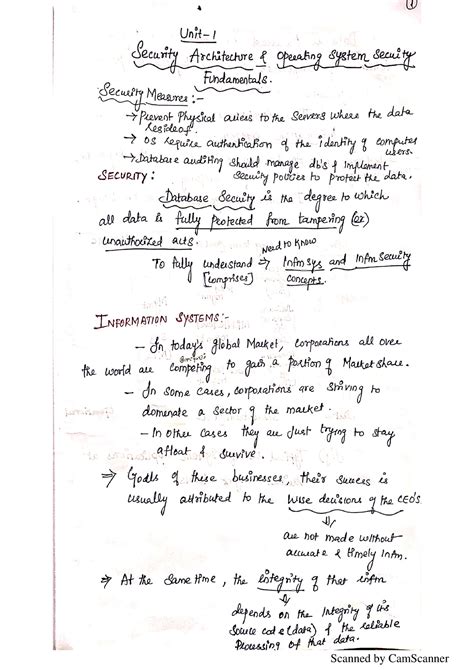 1
Unit-1
Security Architecture & Operating System Security
Fundamentals.
Security Measures :-
→ Prevent Physical access to the Servers where the data
resides.
→ OS require authentication of the identity of computer
users.
→ Database auditing should manage db's & Implement
Security policies to protect the data.
SECURITY :
Database Security is the degree to which
all data is fully protected from tampering (or)
unauthorized acts.
Need to Know
To fully understand → Infm sys and Infm Security
[comprises] concepts.
INFORMATION SYSTEMS :-
- In today's global Market, corporations all over
the world are competing to gain a portion of Market share.
- In some cases, corporations are striving to
domenate a sector of the market.
- In other cases they are Just trying to stay
afloat & survive.
⇒ Goals of these businesses, their success is
usually attributed to the wise decisions of the CEO's
⇓
are not made without
accurate & timely Infm.
⇒ At the same time, the integrity of that infm
⇓
depends on the Integrity of its
Source code (data) & the reliable
Processing of that data.
Scanned by CamScanner